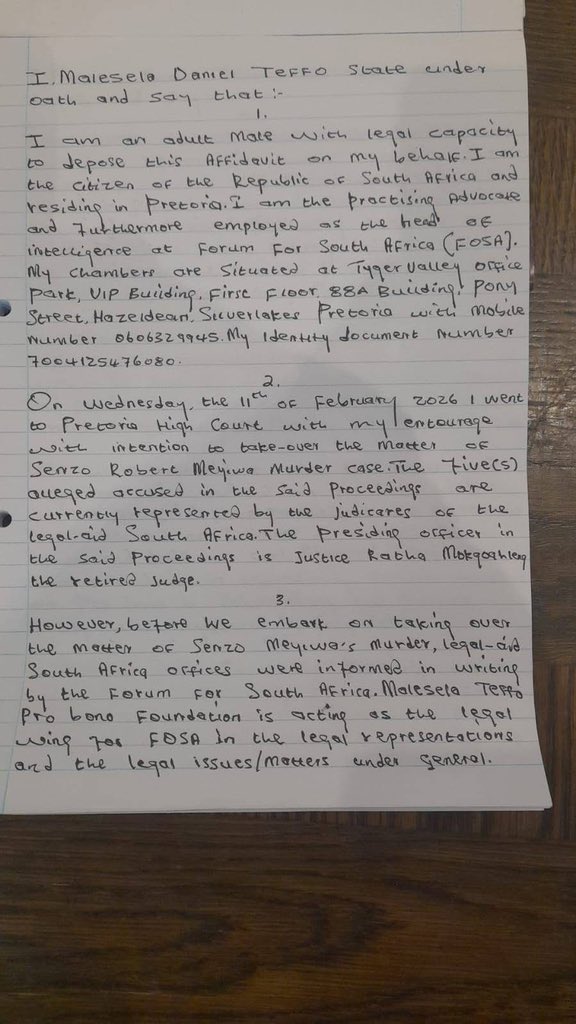 I, Malesela Daniel Teffo state under
oath and say that :-
1.
I am an adult male with legal capacity
to depose this Affidavit on my behalf. I am
the citizen of the Republic of South Africa and
residing in Pretoria. I am the practising Advocate
and furthermore employed as the head of
intelligence at Forum For South Africa (FOSA).
My chambers are situated at Tyger Valley office
park, VIP Building, First Floor, 88A Building, Pony
Street, Hazeldean, Silverlakes Pretoria with mobile
number 0606329945. My Identity document number
7004125476080.
2.
On Wednesday, the 11th of February 2026 I went
to Pretoria High Court with my entourage
with intention to take-over the matter of
Senzo Robert Meyiwa Murder case. The five(5)
alleged accused in the said proceedings are
currently represented by the judicares of the
legal-aid South Africa. The presiding officer in
the said proceedings is Justice Ratha Mokgoahleng
the retired judge.
3.
However, before we embark on taking over
the matter of Senzo Meyiwa's murder, legal-aid
South Africa offices were informed in writing
by the Forum For South Africa. Malesela Teffo
Pro bono Foundation is acting as the legal
wing for FOSA in the legal representations
and the legal issues/matters under general.